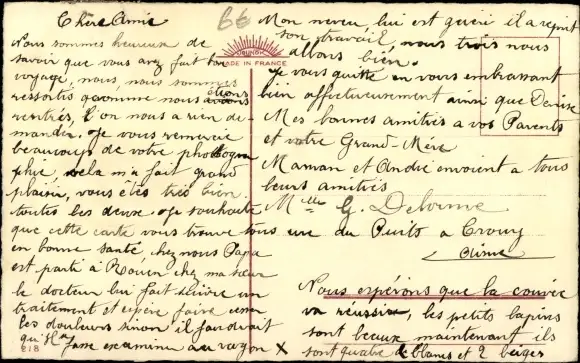 Chère Amie
Nous sommes heureuse de
savoir que vous avez fait bon
voyage, nous, nous sommes
ressortis comme nous étions
rentrés, l'on nous a rien de-
mander. Je vous remercie
beaucoup de votre photogra
phie, cela m'a fait grand
plaisir, vous êtes très bien
toutes les deux. Je souhaite
que cette carte vous trouve tous
en bonne santé, chez nous Papa
est parti à Rouen chez ma sœur
le docteur lui fait suivre un
traitement et espère faire
les douleurs sinon il faudrait
qu'il fasse examiné au rayon X
218
66
MADE IN FRANCE
Mon neveu lui est guéri il a repris
son travail, nous trois nous
allons bien.
Je vous quitte en vous embrassant
bien affectueusement ainsi que Denise
Mes bonnes amitiés a vos Parents
et votre Grand-Mère
Maman et André envoient a tous
leurs amitiés
Melle G. Delorme
rue du Puits a Crouy
Aisne
Nous espérons que la couvée
va réussir, les petits lapins
sont beaux maintenant ils
sont quatre de blancs et 2 beiges